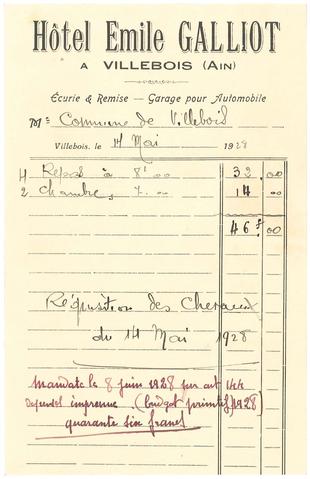 Hôtel Emile GALLIOT
A VILLEBOIS (AIN)
Écurie & Remise — Garage pour Automobile
M Commune de Villebois
Villebois, le 14 Mai 1928
4 Repas à 8f00 32,00
2 chambres, 7.00 14.00
46f.00
Réquisition des Chevaux
du 14 Mai 1928
Mandaté le 8 juin 1928 par art 144
dépenses imprévues (budget primitif) 1928
quarante six francs